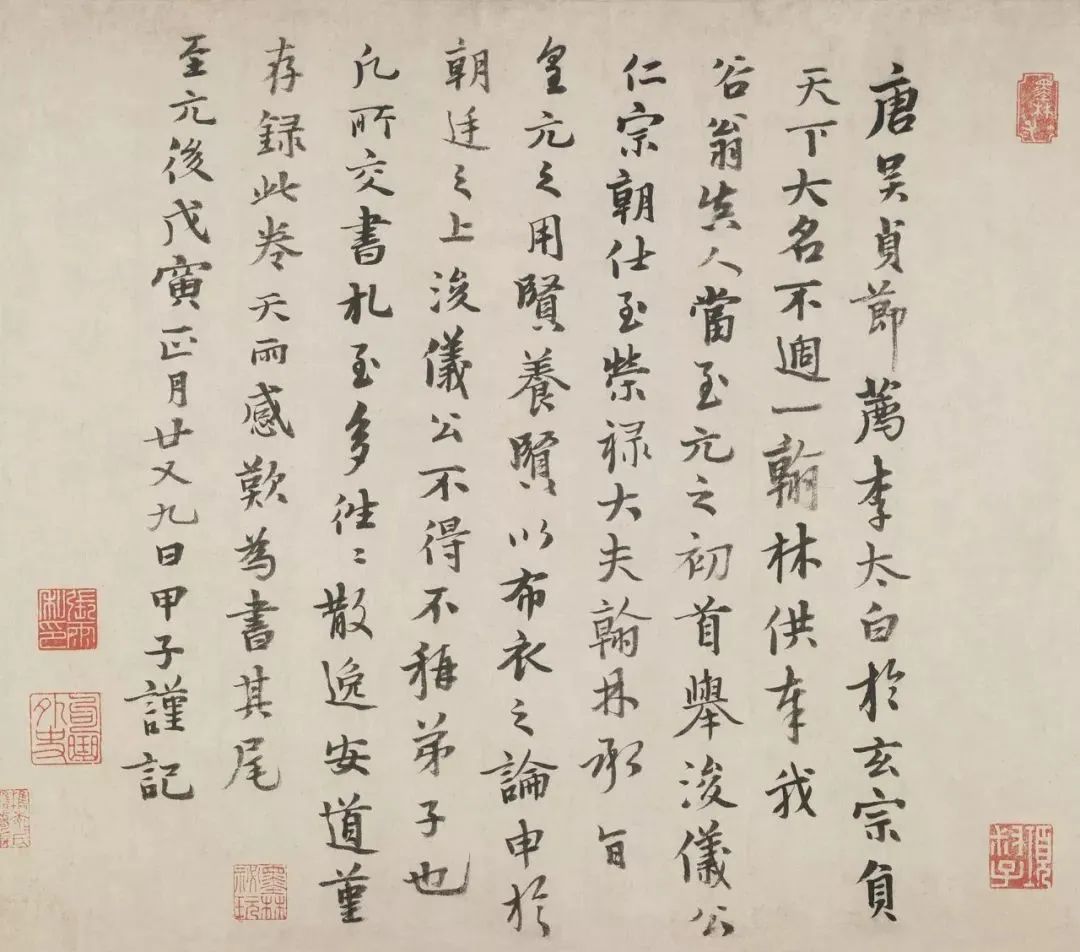 唐吴貞節薦李太白於玄宗負
天下大名不過一翰林供奉我
谷翁真人當至元之初首舉浚儀公
仁宗朝仕至榮禄大夫翰林承旨
皇元之用賢養賢以布衣之論申於
朝廷之上浚儀公不得不稱弟子也
凡所交書札至多往〻散逸安道堇
存録此卷天雨感歎為書其尾
至元後戊寅正月廿又九日甲子謹記
張雨私印